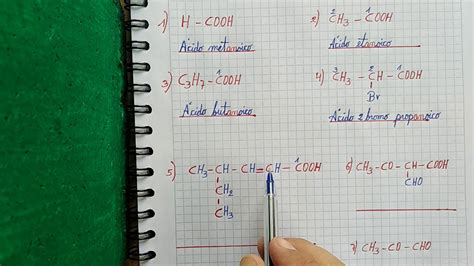 1) H - COOH
Ácido metanoico
2) ²CH₃ - ¹COOH
Ácido etanoico
3) C₃H₇ - COOH
Ácido butanoico
4) ³CH₃ - ²CH - ¹COOH
Br
Ácido 2 bromo propanoico
5) CH₃-CH-CH=CH-¹COOH
CH₂
CH₃
6) CH₃-CO-CH-COOH
CHO
7) CH₃-CO-CHO